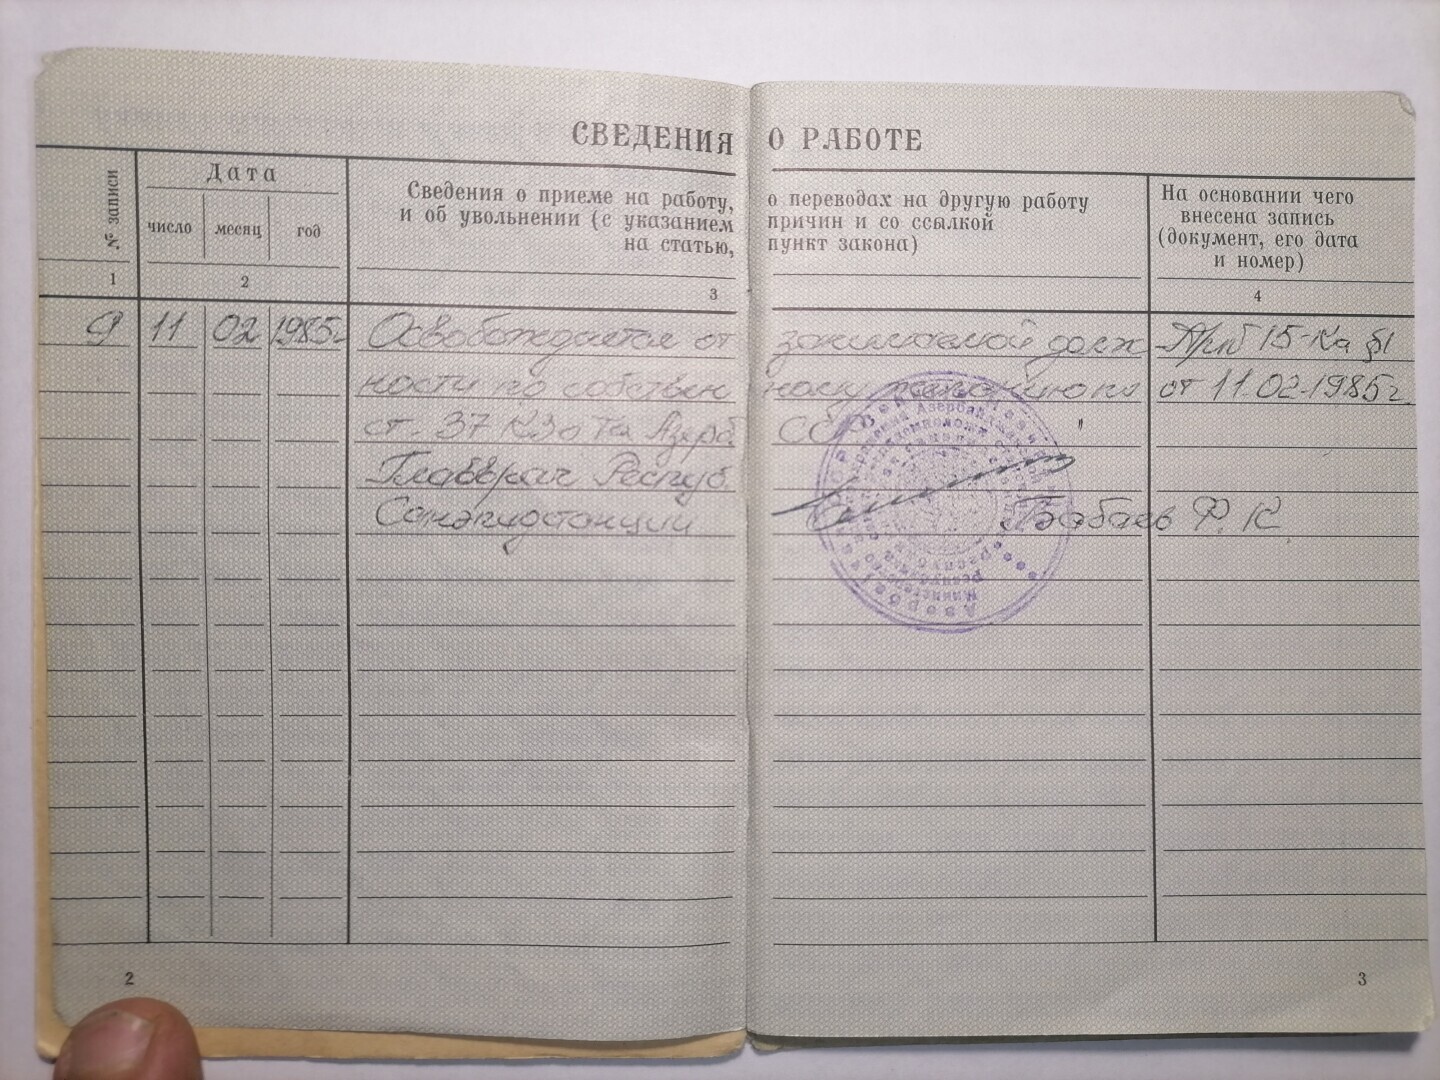 СВЕДЕНИЯ О РАБОТЕ
№ записи
Дата
число месяц год
Сведения о приеме на работу, о переводах на другую работу
и об увольнении (с указанием причин и со ссылкой
на статью, пункт закона)
На основании чего
внесена запись
(документ, его дата
и номер)
1 2 3 4
9 11 02 1985г Освобождается от занимаемой долж Прпб 15-Ка §1
ности по собствен ному желанию по от 11.02-1985г.
ст. 37 КЗоТа Азерб. ССР
Главврач Респуб.
Санэпидстанции Бабаев Ф. К.
2
3